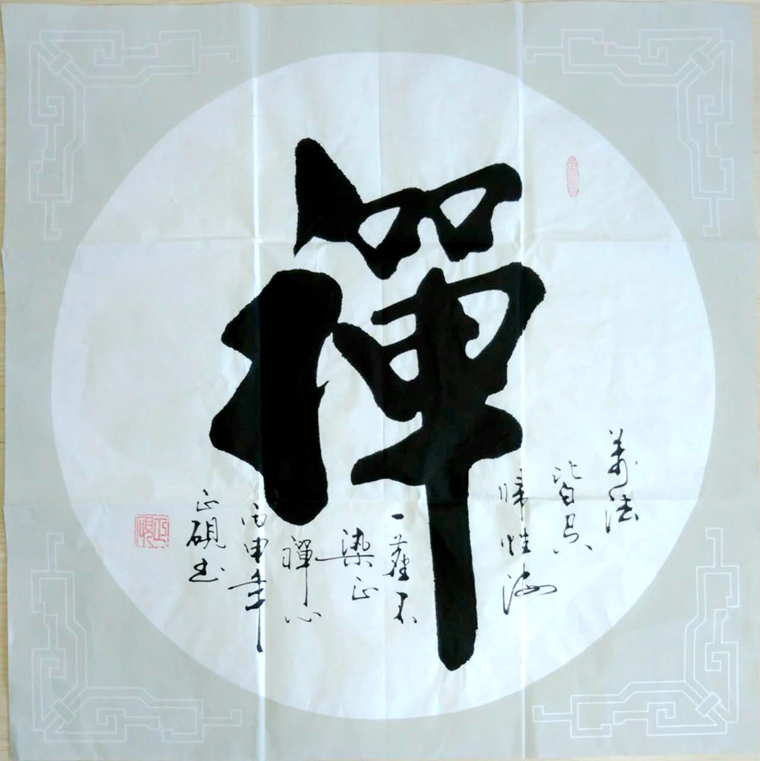 禪
萬法
皆
歸性海
一塵不
染正
禪心
丙申年
正硯书